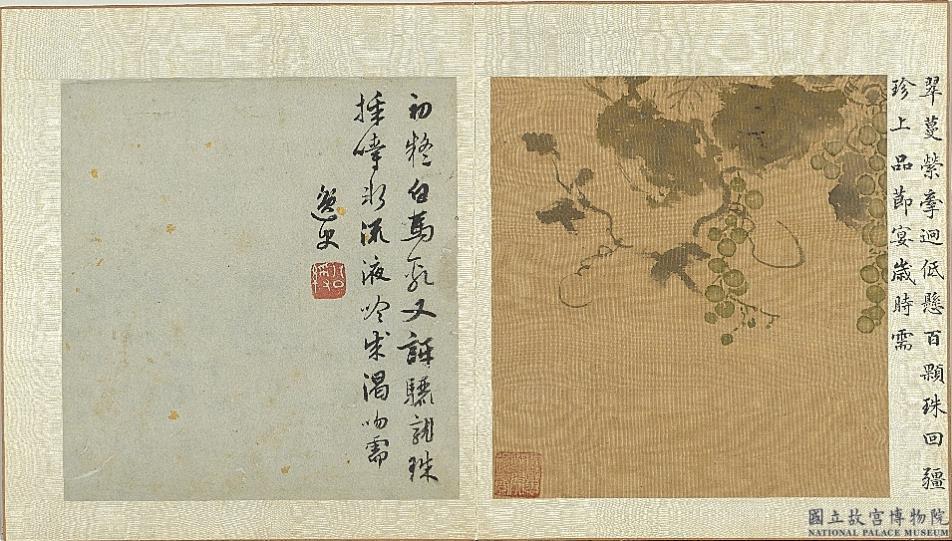 翠蔓縈牽迥低懸百顆珠回疆
珍上品節宴歲時需
初疑白馬乳又訝驪龍珠
採噇冰流液吟成渴吻需
逸史
國立故宮博物院
NATIONAL PALACE MUSEUM